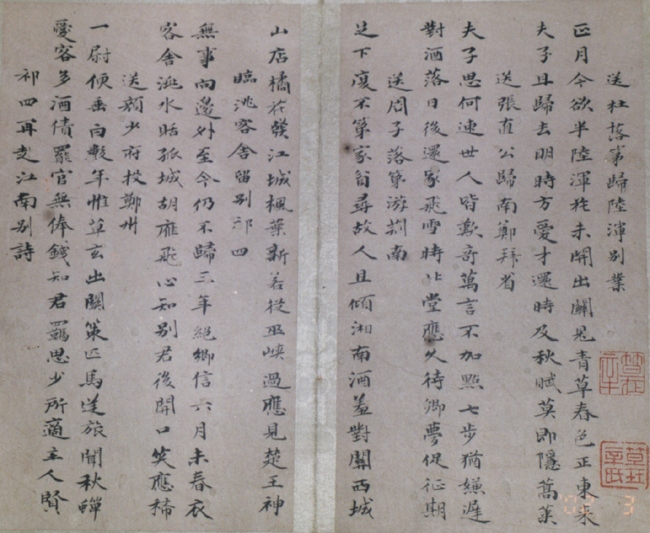 送杜落第歸陸渾別業
正月今欲半陸渾花未開出關見青草春色正東來
夫子且歸去明時方愛才還時及秋賦莫即隱蒿萊
送張直公歸南鄭拜省
夫子思何速世人皆歎奇萬言不加點七步猶嫌遲
對酒落日後還家飛雪時北堂應久待鄉夢促征期
送周子落第游荊南
足下復不第家貧尋故人且傾湘南酒羞對關西
山店橘花發江城楓葉新若從巫峽過應見楚王神
臨洮客舍留別祁四
無事向邊外至今仍不歸三年絕鄉信六月未春衣
客舍洮水聒孤城胡雁飛心知別君後開口笑應稀
送顏少府投鄭州
一尉便垂白數年惟草玄出關策匹馬逆旅聞秋蟬
愛客多酒債罷官無俸錢知君羈思少所適主人賢
祁四再赴江南別詩